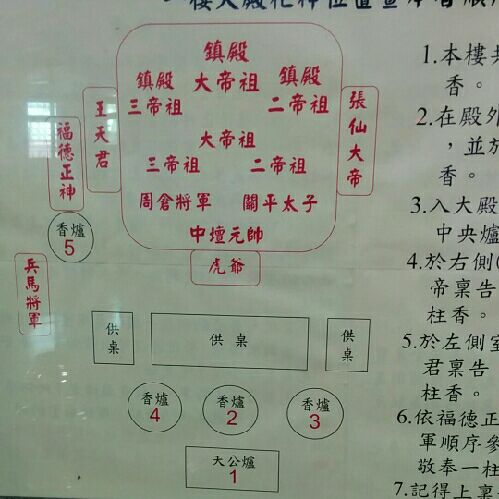 一樓大殿
鎮殿
大帝祖
鎮殿
三帝祖
鎮殿
二帝祖
大帝祖
三帝祖
二帝祖
周倉將軍
關平太子
中壇元帥
虎爺
王天君
張仙大帝
福德正神
香爐
5
兵馬將軍
供桌
供桌
供桌
香爐
4
香爐
2
香爐
3
大公爐
1
1.本樓共
香。
2.在殿外
，並於
香。
3.入大殿
中央爐
4.於右側
帝稟告
柱香。
5.於左側室
君稟告
柱香。
6.依福德正
軍順序參
敬奉一柱
7.記得上稟